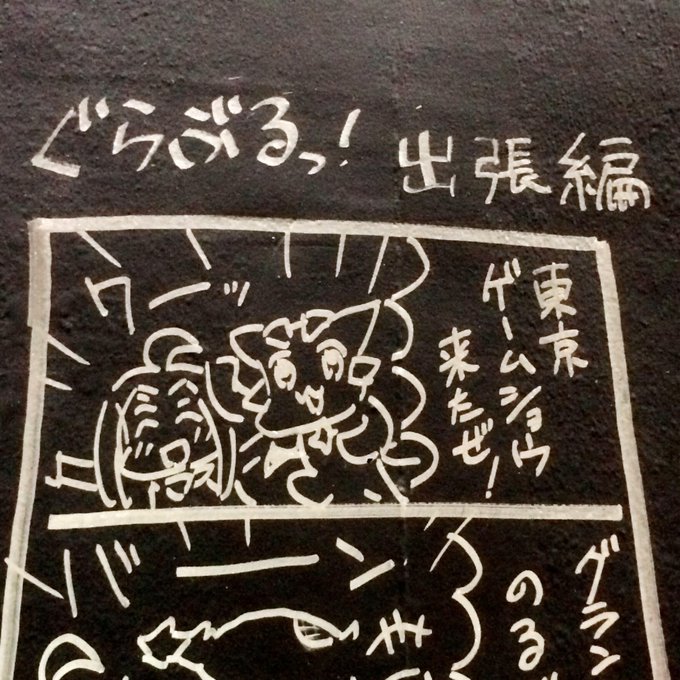 ぐらぶるっ! 出張編
東京
ゲームショウ
来たぜ!
ワーッ
バーン
グラン
のる